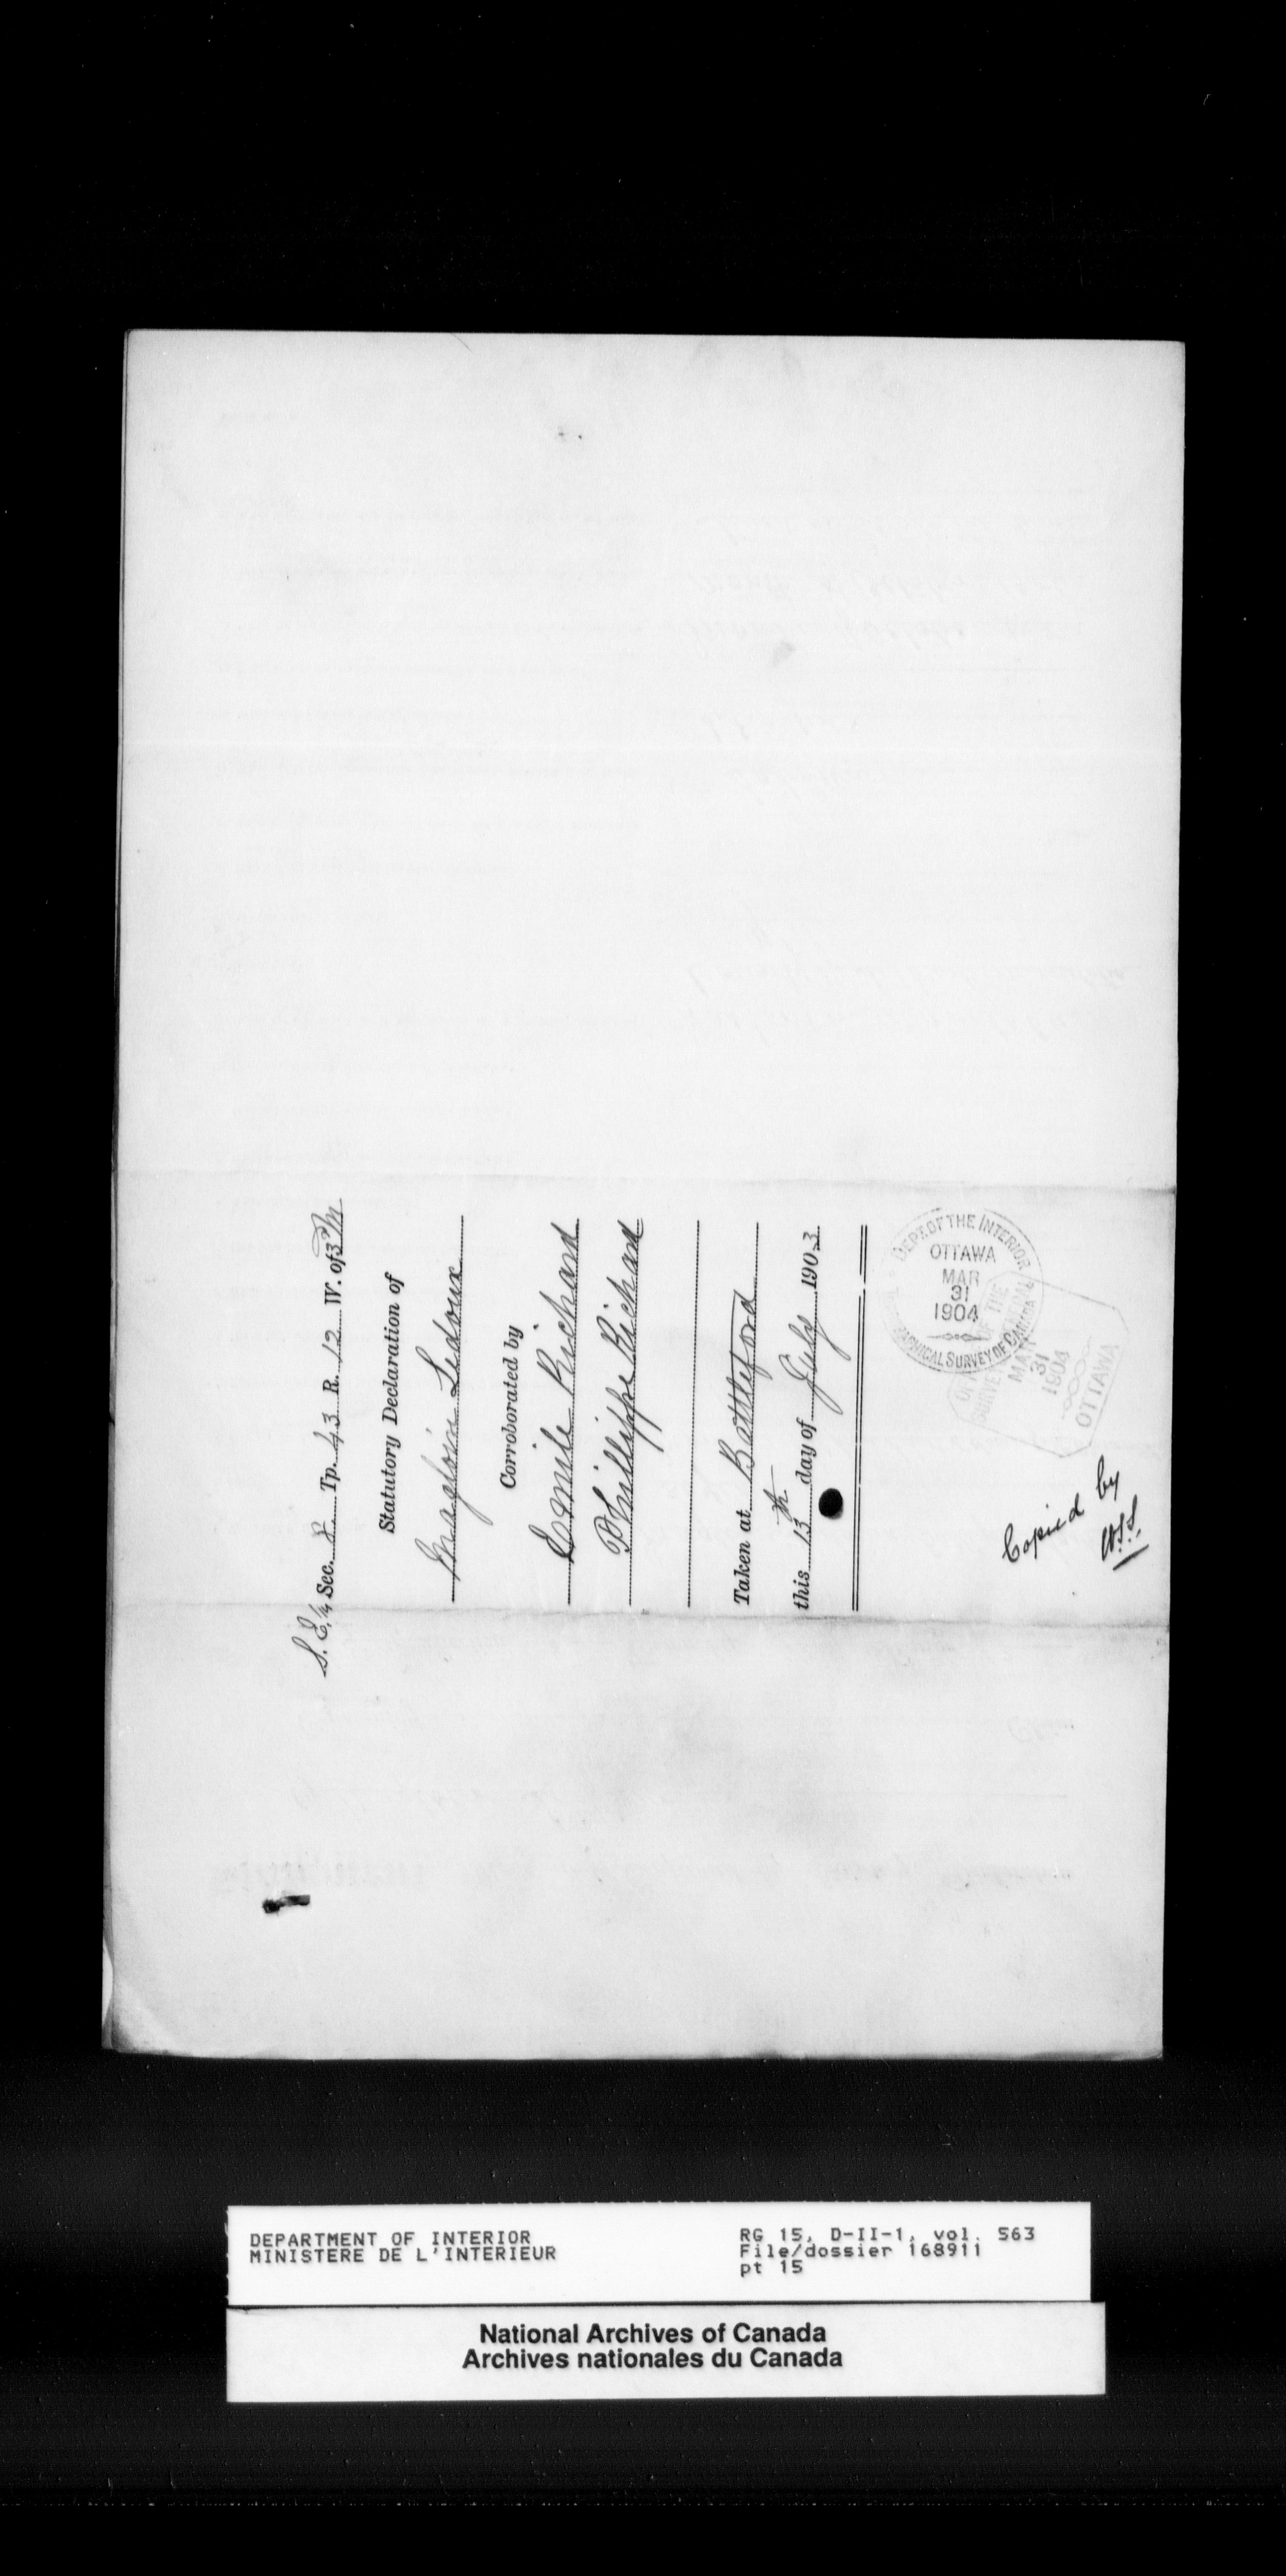 S. E. ¼ Sec. 8 Tp. 43 R. 12 W. of 3rd M
Statutory Declaration of
Magloire Ledoux
Corroborated by
Emile Richard
Phillippe Richard
Taken at Battleford
this 13th day of July 1903
DEPT. OF THE INTERIOR
OTTAWA
MAR
31
1904
SURVEY OF CANADA
OF THE
SURVEYOR
MAR
31
1904
OTTAWA
Copied by
DEPARTMENT OF INTERIOR
MINISTERE DE L'INTERIEUR
RG 15, D-II-1, vol. 563
File/dossier 168911
pt 15
National Archives of Canada
Archives nationales du Canada